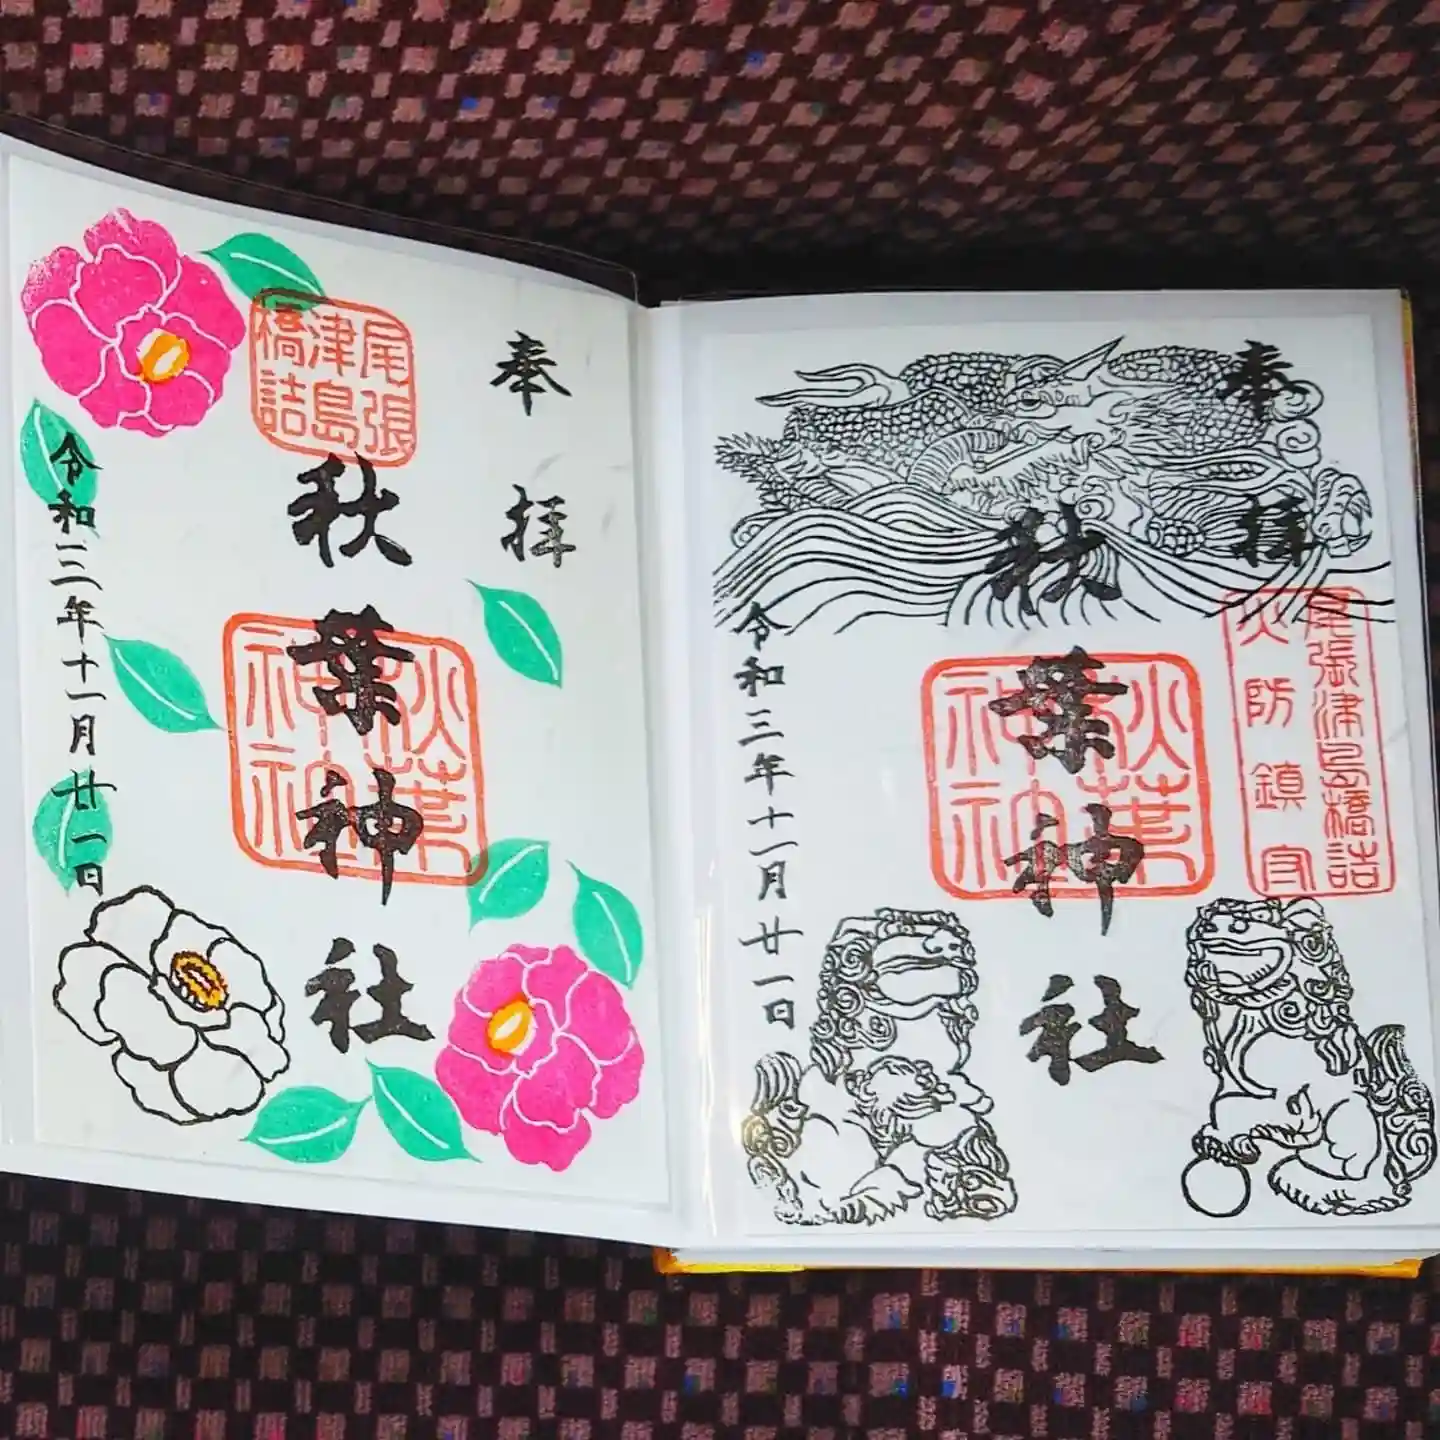 奉拝
尾張
津島
橋詰
秋葉神社
秋葉
神社
令和三年十一月廿一日
奉拝
尾張津島橋詰
火防鎮守
秋葉神社
秋葉
神社
令和三年十一月廿一日